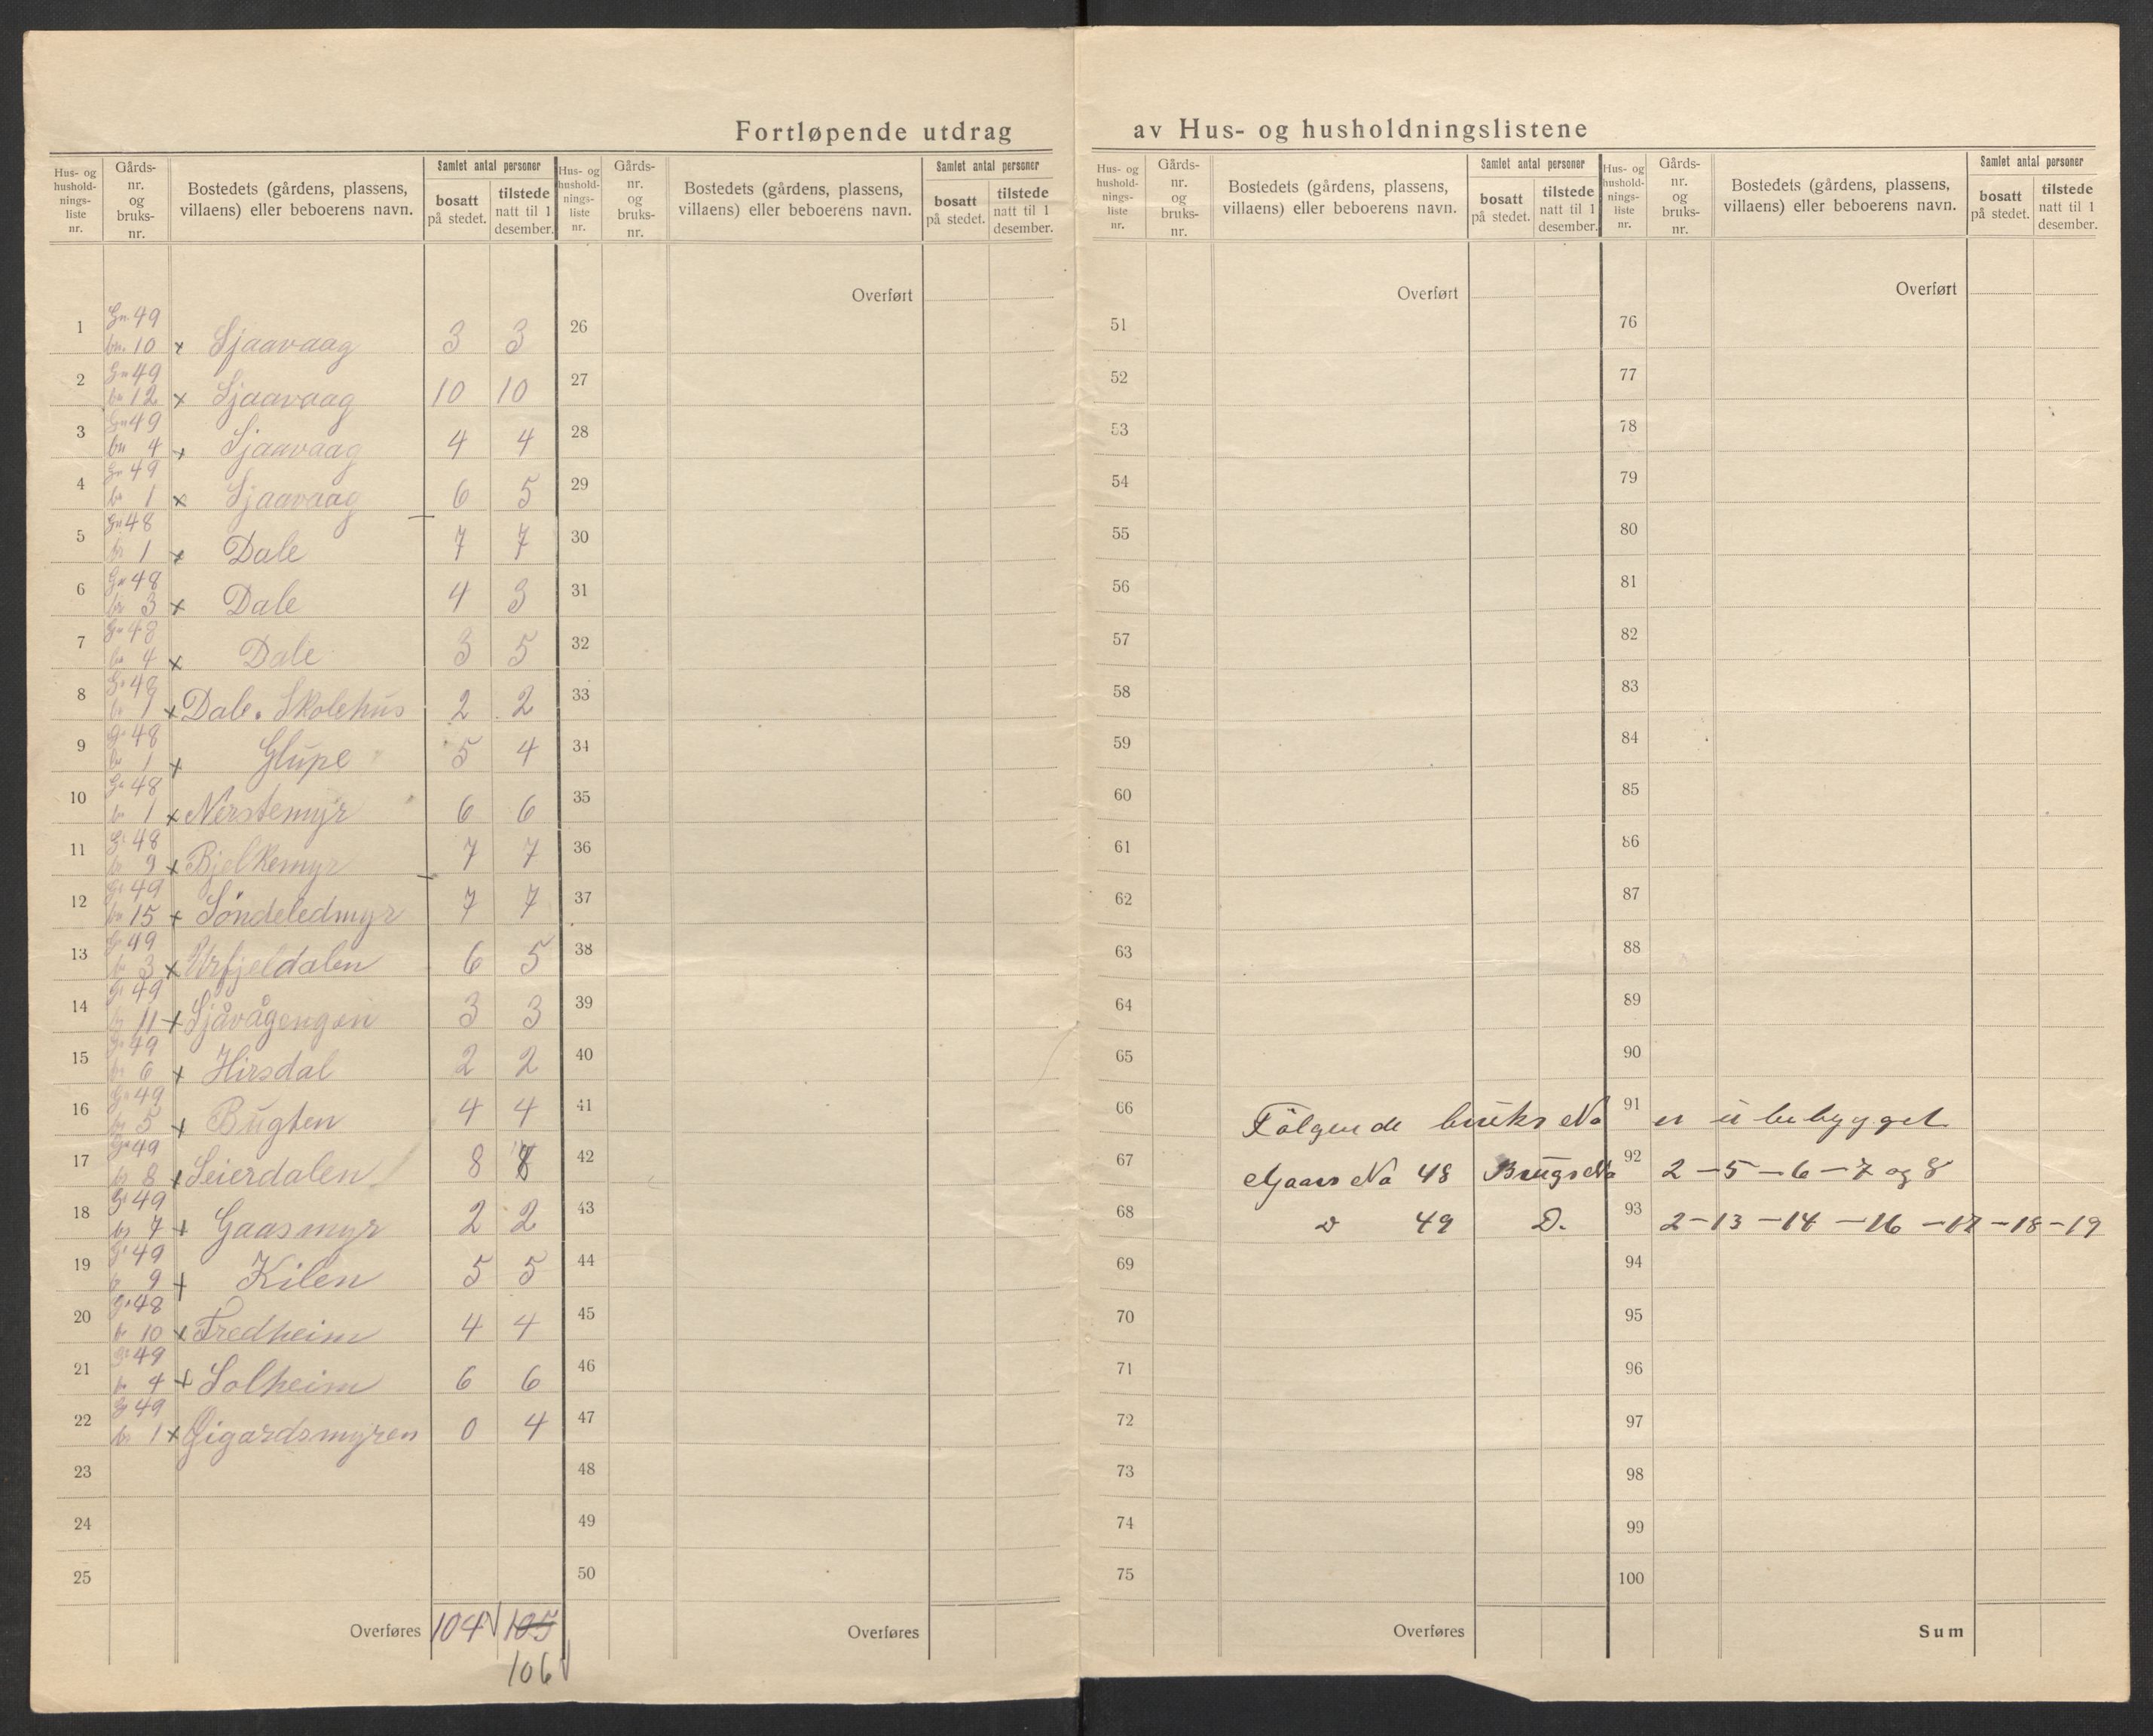 Fortløpende utdrag av Hus- og husholdningslistene
Hus- og husholdningsliste nr. | Gårds-nr. og bruks-nr. | Bostedets (gårdens, plassens, villaens) eller beboerens navn. | Samlet antal personer | bosatt på stedet. | tilstede natt til 1 desember.
1 Gn 49 bn. 10 x Sjaavaag 3 3
2 Gn 49 bn 12 x Sjaavaag 10 10
3 Gn 49 bn 4 x Sjaavaag 4 4
4 Gn 49 bn 1 x Sjaavaag 6 5
5 Gn 48 bn 1 x Dale 7 7
6 Gn 48 bn 3 x Dale 4 3
7 Gn 48 bn 4 x Dale 3 5
8 Gn 48 bn 1 x Dale. Skolehus 2 2
9 Gn 48 bn 1 x Glupe 5 4
10 Gn 48 bn 1 x Nerstemyr 6 6
11 Gn 48 bn 9 x Bjelkemyr 7 7
12 Gn 49 bn 15 x Söndeledmyr 7 7
13 Gn 49 bn 3 x Urfjeldalen 6 5
14 Gn 49 bn 11 x Sjåvågengen 3 3
15 Gn 49 bn 6 x Hirsdal 2 2
16 Gn 49 bn 5 x Bugten 4 4
17 Gn 49 bn 8 x Leierdalen 8 8
18 Gn 49 bn 7 x Gaasmyr 2 2
19 Gn 49 bn 9 x Kilen 5 5
20 Gn 48 bn 10 x Fredheim 4 4
21 Gn 49 bn 4 x Solheim 6 6
22 Gn 49 bn 1 x Gigardsmyren 0 4
23
24
25
Overføres 104 105
106
Hus- og husholdningsliste nr. | Gårds-nr. og bruks-nr. | Bostedets (gårdens, plassens, villaens) eller beboerens navn. | Samlet antal personer | bosatt på stedet. | tilstede natt til 1 desember.
Overført
26
27
28
29
30
31
32
33
34
35
36
37
38
39
40
41
42
43
44
45
46
47
48
49
50
Overføres
Hus- og husholdningsliste nr. | Gårds-nr. og bruks-nr. | Bostedets (gårdens, plassens, villaens) eller beboerens navn. | Samlet antal personer | bosatt på stedet. | tilstede natt til 1 desember.
Overført
51
52
53
54
55
56
57
58
59
60
61
62
63
64
65
66
67
68
69
70
71
72
73
74
75
Overføres
Hus- og husholdningsliste nr. | Gårds-nr. og bruks-nr. | Bostedets (gårdens, plassens, villaens) eller beboerens navn. | Samlet antal personer | bosatt på stedet. | tilstede natt til 1 desember.
Overført
76
77
78
79
80
81
82
83
84
85
86
87
88
89
90
91
92
93
94
95
96
97
98
99
100
Sum
Fölgende bruks No er ubebygget
Gaars No 48 Brugs No 2 - 5 - 6 - 7 og 8
D 49 D. 2 - 13 - 14 - 16 - 17 - 18 - 19